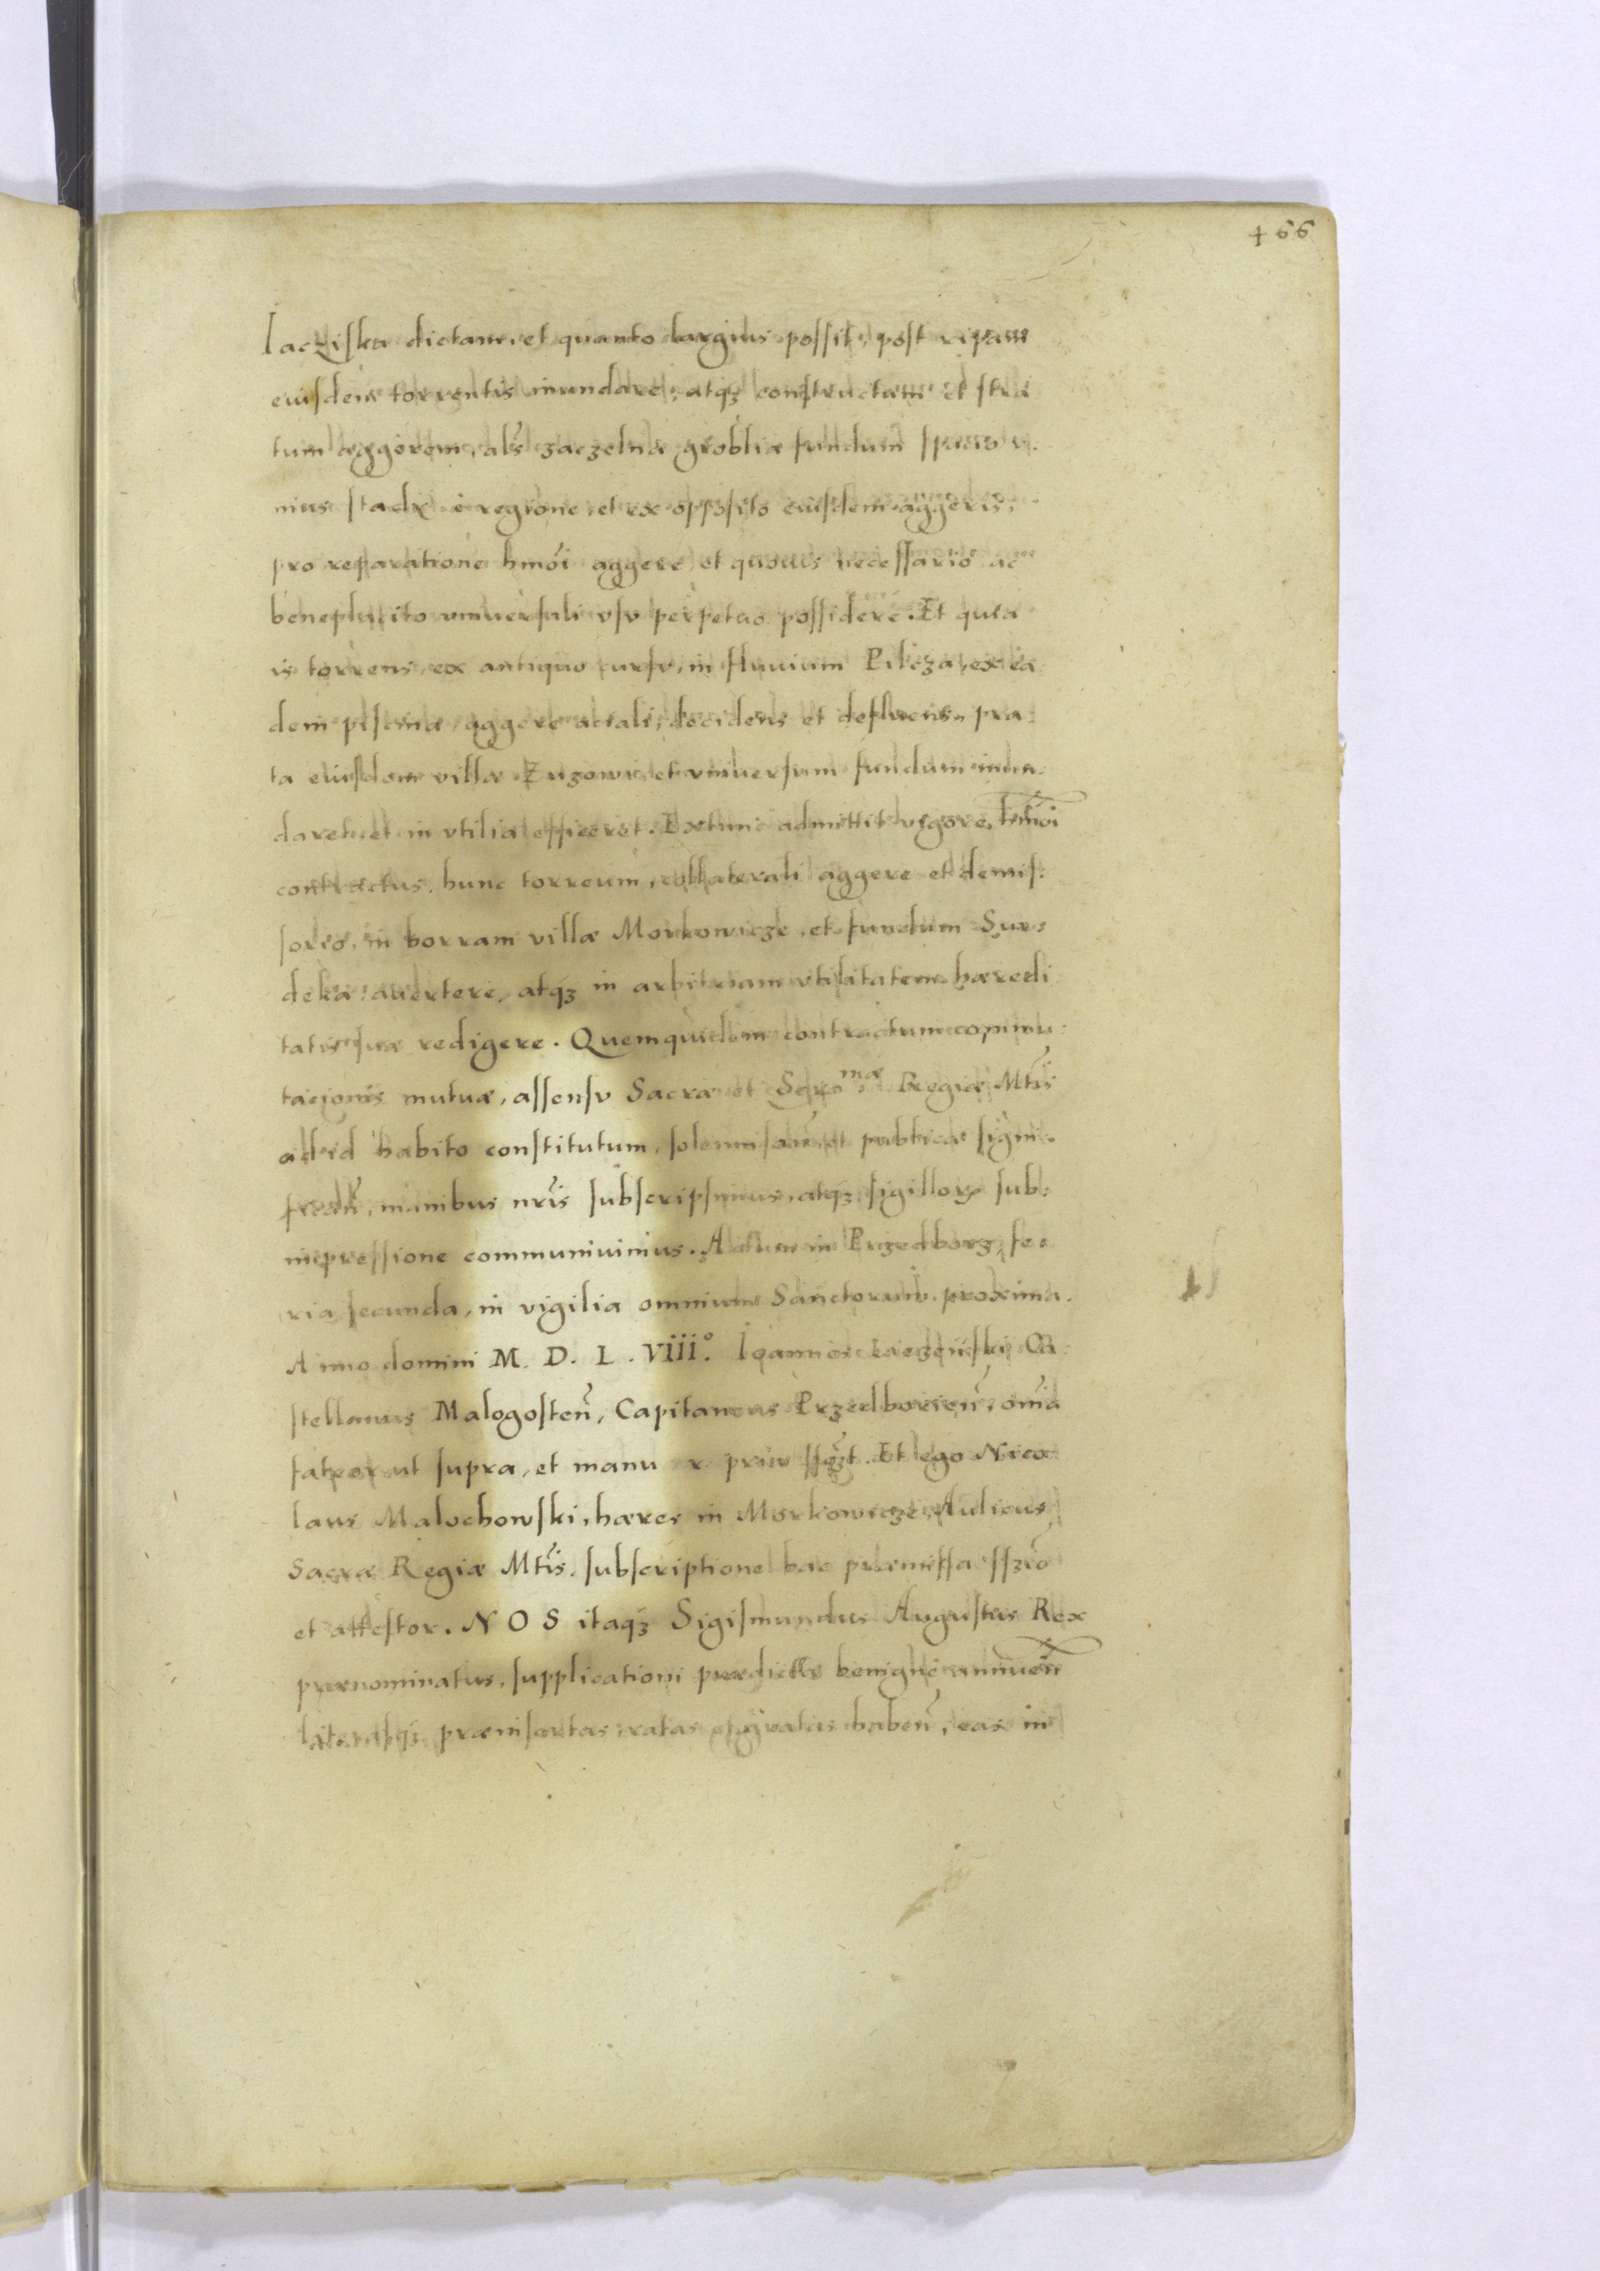 466
Iacziska dictam, et quanto largius possit, post ripam
eiusdem torrentis inundare, atqꝫ constructam et stra
tum aggerem, als̃ zaczelna groblia fundum spacio v
nius stadii e regione, et ex opposito eiusdem aggeris,
pro reparatione hmõi aggere, et quouis necessario ac
beneplacito vniuersali vsv perpetuo possidere. Et quia
is torrens, ex antiquo cursv, in fluuium Pilcza, ex ea
dem piscina, aggere aciali, decidens et defluens, pra
ta eiusdem villæ et vniuersum fundum inun
daret, et in vtilia efficeret. Extunc admittit vigore, hmõi
contractus, hunc torrentem, collaterali aggere et demis:
sorio, in borram villæ Morkowicze, et fundum Sur:
deka: auertere, atqꝫ in arbitrariam vtilitatem hæredi
tatis suæ redigere. Quemquidem contractum commu:
tacionis mutuæ, assensv Sacræ et Sere.mæ Regiæ Mtis̃
ad id habito constitutum, et publicæ
manibus nr̃is subscripsimus, atqꝫ sigillorꝝ sub:
inpressione communiuimus. Actum in Przedborz, fe:
ria secunda, in vigilia omnium Sanctorum proxima.
Anno domini M. D. L. VIII.º Ioannes Ca:
stellanus Malogosteñ, Capitaneus Przedborieñ, om̃ia
fateor ut supra, et manu Et ego Nico
laus Malochowski, hæres in Morkowicze, Aulicus
Sacræ Regiæ Mtis̃, subscriptione hac præmissa
et attestor. NOS itaqꝫ Sigismundus Augustus Rex
prænominatus, supplicationi prædictæ benigne annueñ
literasqꝫ præinsertas, ratas et gratas habeñ, eas in